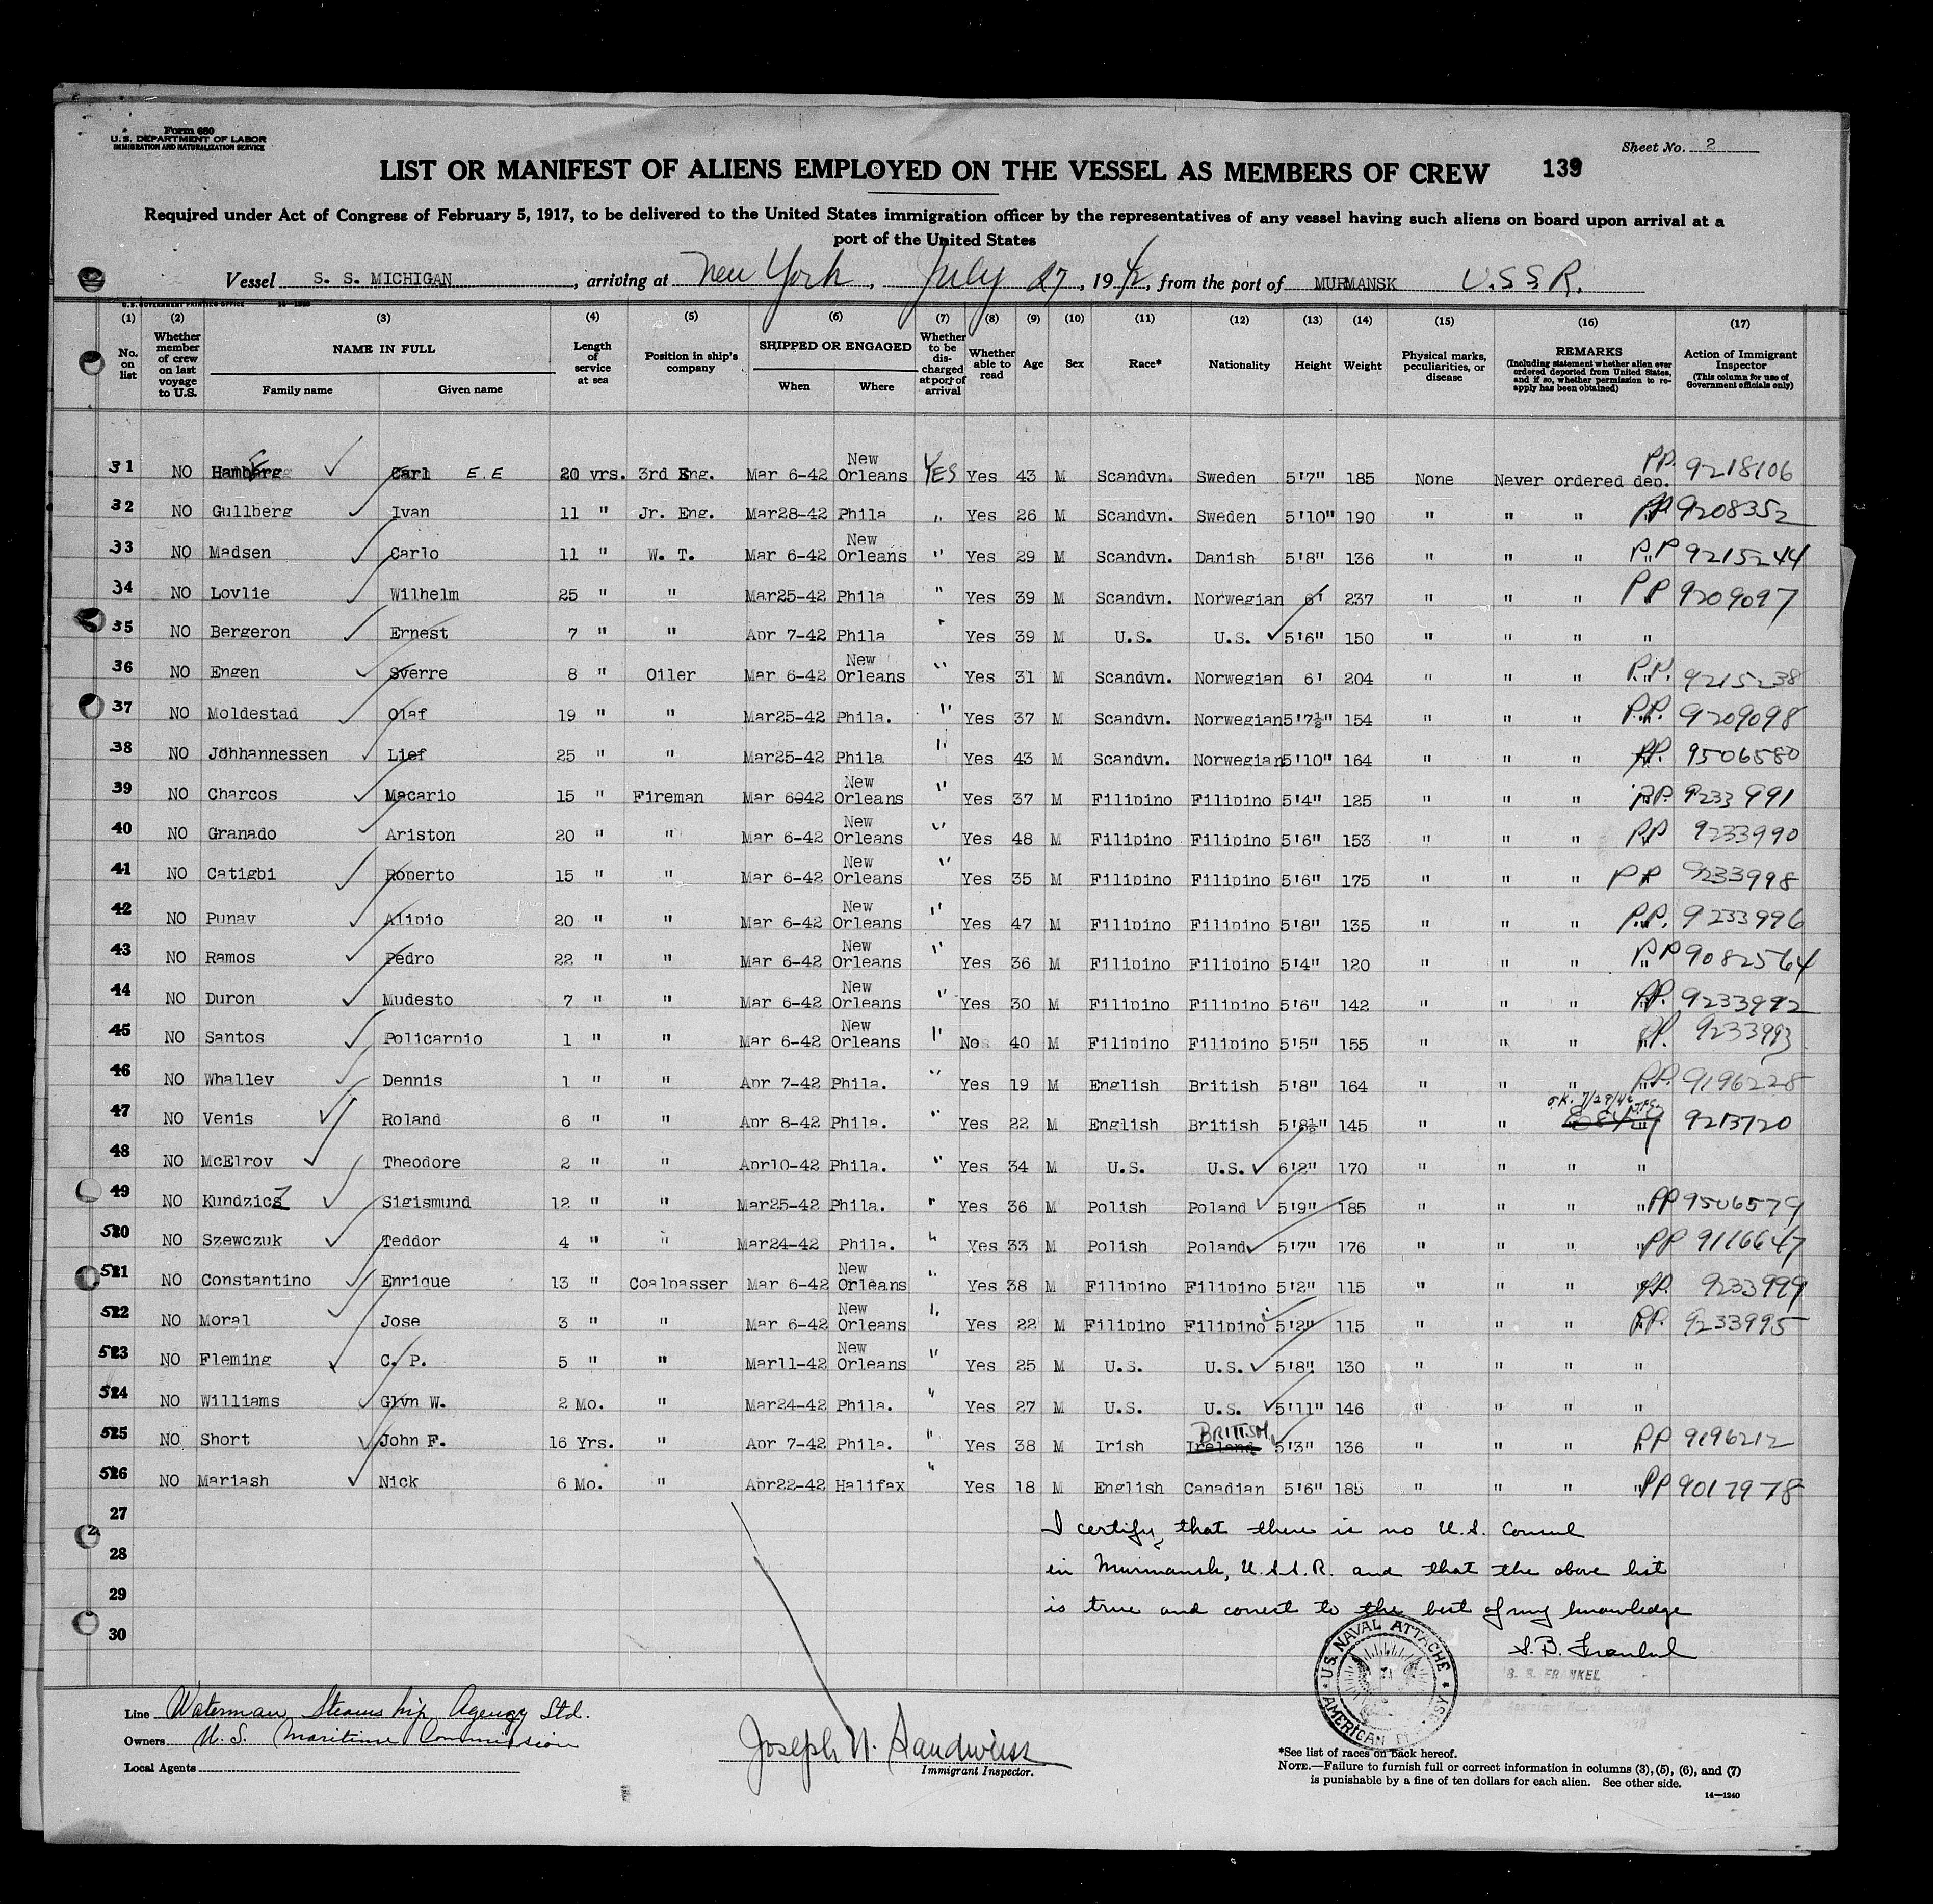 Form 680
U.S. DEPARTMENT OF LABOR
IMMIGRATION AND NATURALIZATION SERVICE
Sheet No. 2
LIST OR MANIFEST OF ALIENS EMPLOYED ON THE VESSEL AS MEMBERS OF CREW 139
Required under Act of Congress of February 5, 1917, to be delivered to the United States immigration officer by the representatives of any vessel having such aliens on board upon arrival at a
port of the United States
Vessel S. S. MICHIGAN, arriving at New York, July 27, 1942, from the port of MURMANSK U.S.S.R.
U.S. GOVERNMENT PRINTING OFFICE
(1) (2) (3) (4) (5) (6) (7) (8) (9) (10) (11) (12) (13) (14) (15) (16) (17)
No. on list
Whether member of crew on last voyage to U.S.
NAME IN FULL
Family name Given name
Length of service at sea
Position in ship's company
SHIPPED OR ENGAGED
When Where
Whether to be discharged at port of arrival
Whether able to read
Age Sex Race* Nationality Height Weight
Physical marks, peculiarities, or disease
REMARKS
(Including statement whether alien ever ordered deported from United States, and if so, whether permission to reapply has been obtained)
Action of Immigrant Inspector
(This column for use of Government officials only)
31 NO Hamberg Carl E.E 20 yrs. 3rd Eng. Mar 6-42 New Orleans YES Yes 43 M Scandvn. Sweden 5'7" 185 None Never ordered dep. PP. 9218106
32 NO Gullberg Ivan 11 " Jr. Eng. Mar28-42 Phila " Yes 26 M Scandvn. Sweden 5'10" 190 " " " PP 9208352
33 NO Madsen Carlo 11 " W. T. Mar 6-42 New Orleans " Yes 29 M Scandvn. Danish 5'8" 136 " " " PP 9215244
34 NO Lovlie Wilhelm 25 " " Mar25-42 Phila " Yes 39 M Scandvn. Norwegian 6' 237 " " " PP 9209097
35 NO Bergeron Ernest 7 " " Apr 7-42 Phila " Yes 39 M U.S. U.S. 5'6" 150 " " " "
36 NO Engen Sverre 8 " Oiler Mar 6-42 New Orleans " Yes 31 M Scandvn. Norwegian 6' 204 " " " P.P. 9215238
37 NO Moldestad Olaf 19 " " Mar25-42 Phila. " Yes 37 M Scandvn. Norwegian 5'7½" 154 " " " P.P. 9209098
38 NO Johhannessen Lief 25 " " Mar25-42 Phila " Yes 43 M Scandvn. Norwegian 5'10" 164 " " " PP. 9506580
39 NO Charcos Macario 15 " Fireman Mar 6042 New Orleans " Yes 37 M Filipino Filipino 5'4" 125 " " " P.P. 9233991
40 NO Granado Ariston 20 " " Mar 6-42 New Orleans " Yes 48 M Filipino Filipino 5'6" 153 " " " PP 9233990
41 NO Catigbi Roberto 15 " " Mar 6-42 New Orleans " Yes 35 M Filipino Filipino 5'6" 175 " " " PP 9233998
42 NO Punay Alipio 20 " " Mar 6-42 New Orleans " Yes 47 M Filipino Filipino 5'8" 135 " " " P.P. 9233996
43 NO Ramos Pedro 22 " " Mar 6-42 New Orleans " Yes 36 M Filipino Filipino 5'4" 120 " " " PP 9082564
44 NO Duron Mudesto 7 " " Mar 6-42 New Orleans " Yes 30 M Filipino Filipino 5'6" 142 " " " PP. 9233992
45 NO Santos Policarpio 1 " " Mar 6-42 New Orleans " No 40 M Filipino Filipino 5'5" 155 " " " PP. 9233993
46 NO Whalley Dennis 1 " " Apr 7-42 Phila. " Yes 19 M English British 5'8" 164 " " " P.P. 9196228
47 NO Venis Roland 6 " " Apr 8-42 Phila. " Yes 22 M English British 5'8½" 145 " " O.K. 7/29/42 9213720
48 NO McElroy Theodore 2 " " Apr10-42 Phila. " Yes 34 M U.S. U.S. 6'2" 170 " " " "
49 NO Kundzicz Sigismund 12 " " Mar25-42 Phila. " Yes 36 M Polish Poland 5'9" 185 " " " " PP 9506579
520 NO Szewczuk Teddor 4 " " Mar24-42 Phila. " Yes 33 M Polish Poland 5'7" 176 " " " " PP 9116647
521 NO Constantino Enrique 13 " Coalpasser Mar 6-42 New Orleans " Yes 38 M Filipino Filipino 5'2" 115 " " " PP. 9233999
522 NO Moral Jose 3 " " Mar 6-42 New Orleans " Yes 22 M Filipino Filipino 5'2" 115 " " " PP. 9233995
523 NO Fleming C. P. 5 " " Mar11-42 New Orleans " Yes 25 M U.S. U.S. 5'8" 130 " " " "
524 NO Williams Glyn W. 2 Mo. " Mar24-42 Phila. " Yes 27 M U.S. U.S. 5'11" 146 " " " "
525 NO Short John F. 16 Yrs. " Apr 7-42 Phila. " Yes 38 M Irish Ireland BRITISH 5'3" 136 " " " PP 9196212
526 NO Mariash Nick 6 Mo. " Apr22-42 Halifax " Yes 18 M English Canadian 5'6" 185 " " " " PP 9017978
27
28
29
30
I certify that there is no U.S. Consul
in Murmansk, U.S.S.R. and that the above list
is true and correct to the best of my knowledge
S. B. Frankel
S. B. FRANKEL
U.S. NAVAL ATTACHE * AMERICAN EMBASSY *
Line Waterman Steamship Agency Ltd.
Owners U.S. Maritime Commission
Local Agents
Joseph N. Sandweiss
Immigrant Inspector.
*See list of races on back hereof.
NOTE.—Failure to furnish full or correct information in columns (3), (5), (6), and (7)
is punishable by a fine of ten dollars for each alien. See other side.
14—1240